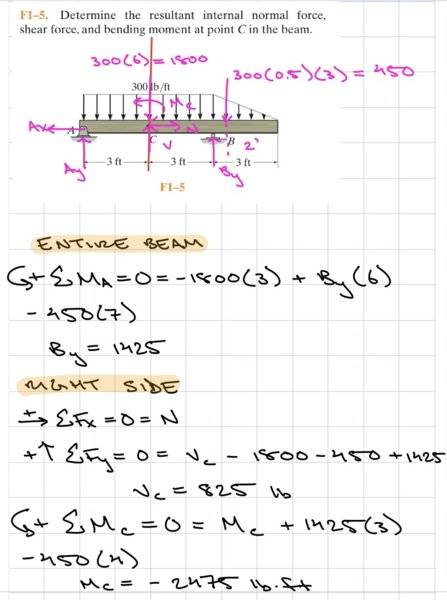 F1–5. Determine the resultant internal normal force,
shear force, and bending moment at point C in the beam.
300(6) = 1800
300(0.5)(3) = 450
300 lb/ft
Mc
Ax
A
N
C
V
B
2'
3 ft
3 ft
3 ft
Ay
By
F1–5
ENTIRE BEAM
↺+ ΣMA = 0 = -1800(3) + By(6)
- 450(7)
By = 1425
RIGHT SIDE
+→ ΣFx = 0 = N
+↑ ΣFy = 0 = Vc - 1800 - 450 + 1425
Vc = 825 lb
↺+ ΣMc = 0 = Mc + 1425(3)
- 450(4)
Mc = - 2475 lb.ft